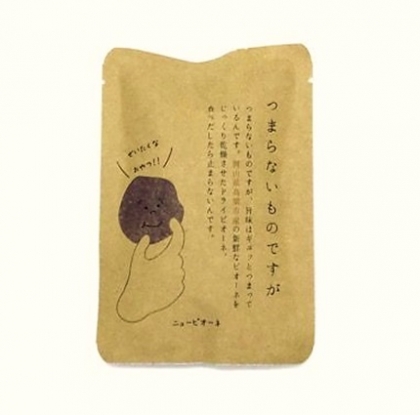 つまらないものですが
つまらないものですが、旨味はギュッとつまって
いるんです。岡山県高梁市産の新鮮なピオーネを
じっくり乾燥させたドライピオーネ。
食べだしたら止まらないんです。
ぜいたくな
おやつ!!
ニューピオーネ